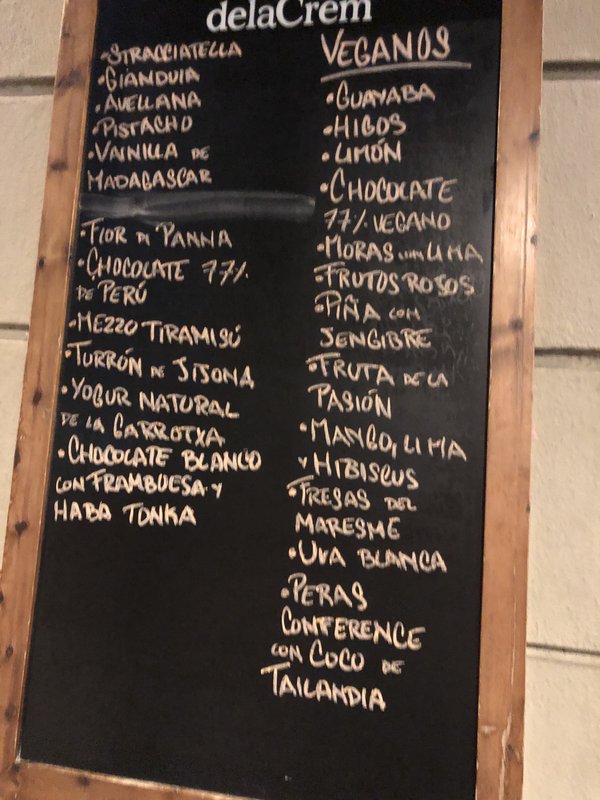 delaCrem
•STRACCIATELLA
•GIANDUIA
•AVELLANA
•PISTACHO
•VAINILLA DE
MADAGASCAR
•FIOR DI PANNA
•CHOCOLATE 77%
DE PERÚ
•MEZZO TIRAMISÚ
•TURRÓN DE JIJONA
•YOGUR NATURAL
DE LA GARROTXA
•CHOCOLATE BLANCO
CON FRAMBUESA Y
HABA TONKA
VEGANOS
•GUAYABA
•HIGOS
•LIMÓN
•CHOCOLATE
77% VEGANO
•MORAS CON LIMA
•FRUTOS ROJOS
•PIÑA CON
JENGIBRE
•FRUTA DE LA
PASIÓN
•MANGO, LIMA
Y HIBISCUS
•FRESAS DEL
MARESME
•UVA BLANCA
•PERAS
CONFERENCE
CON COCO DE
TAILANDIA